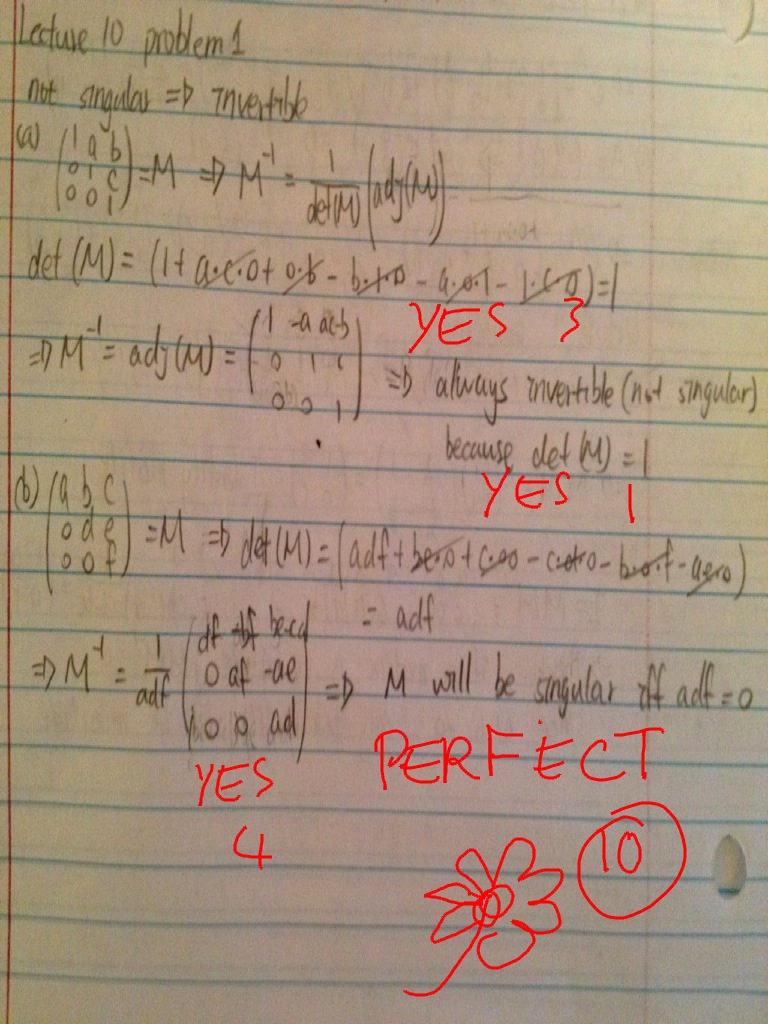 Lecture 10 problem 1
not singular => invertible
(a) (1 a b; 0 1 c; 0 0 1) = M => M^-1 = 1/det(M) (adj(M))
det (M) = (1 + a·c·0 + 0·b - b·1·0 - a·0·1 - 1·c·0) = 1
YES 3
=> M^-1 = adj(M) = (1 -a ac-b; 0 1 c; 0 0 1) => always invertible (not singular)
because det (M) = 1
YES 1
(b) (a b c; 0 d e; 0 0 f) = M => det(M) = (adf + be·0 + c·00 - c·d·0 - b·0·f - ae·0)
= adf
=> M^-1 = 1/adf (df -bf be-cd; 0 af -ae; 0 0 ad) => M will be singular iff adf = 0
YES
4
PERFECT
10